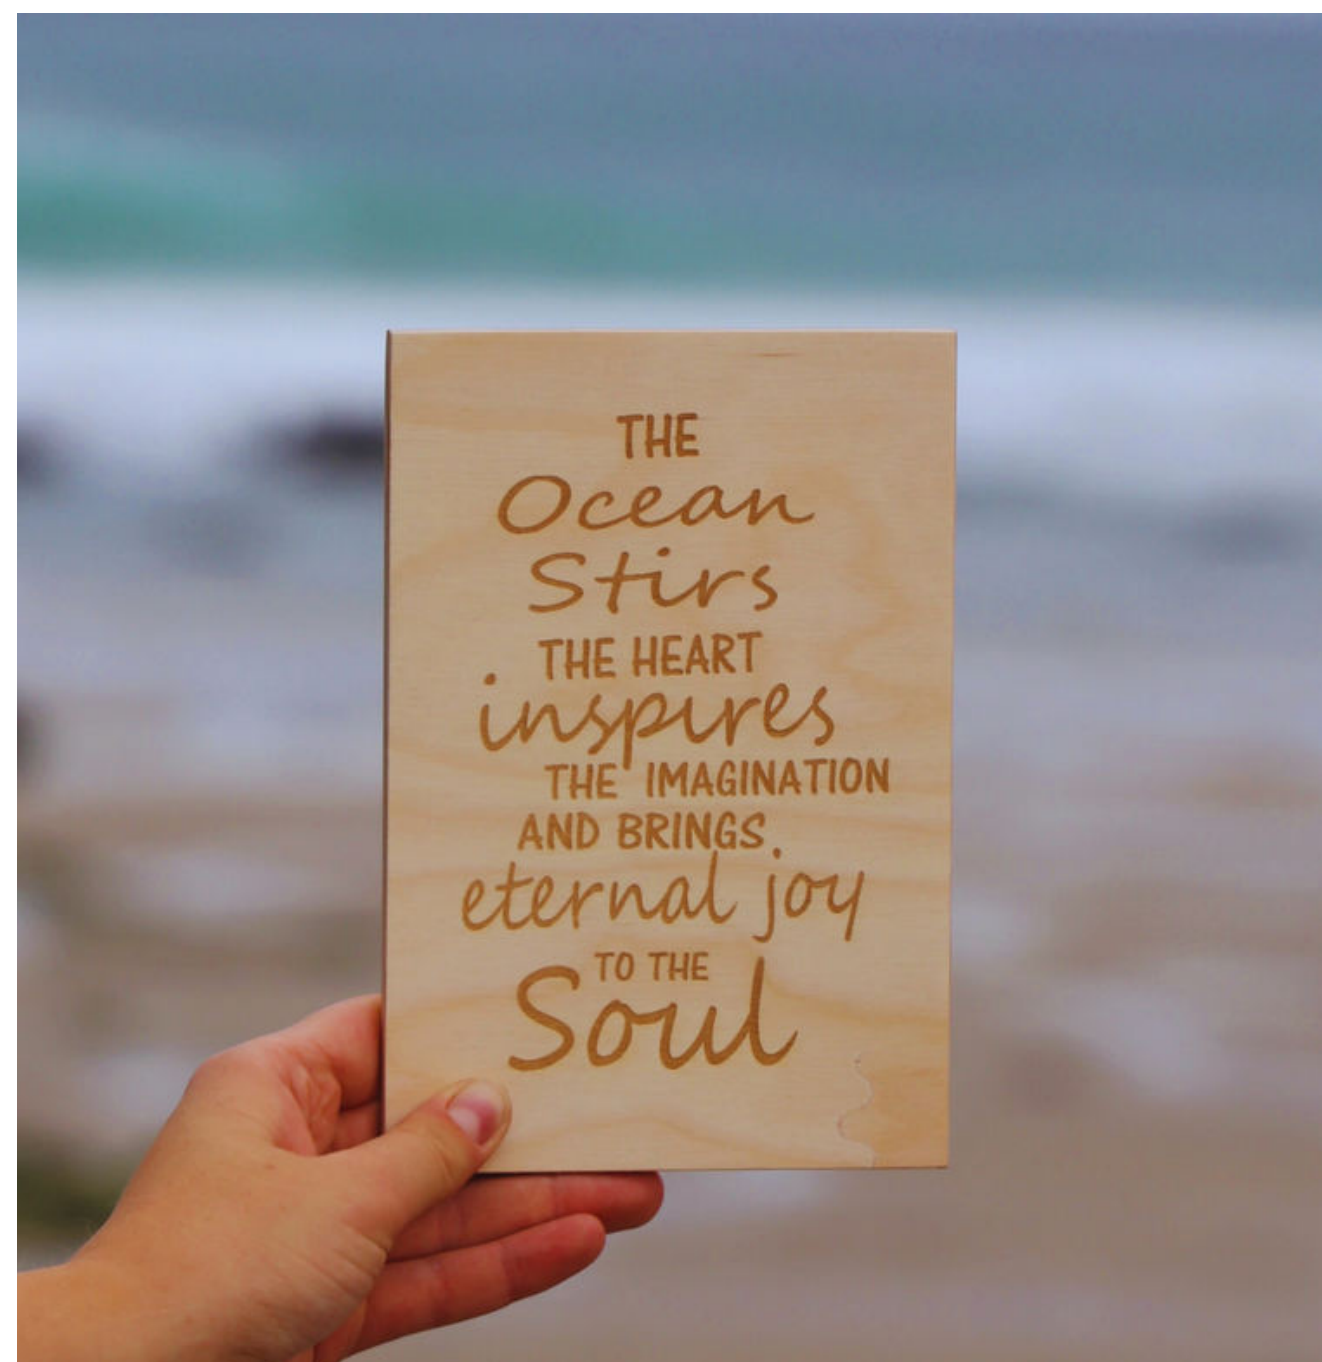 THE
Ocean
Stirs
THE HEART
inspires
THE IMAGINATION
AND BRINGS
eternal joy
TO THE
Soul